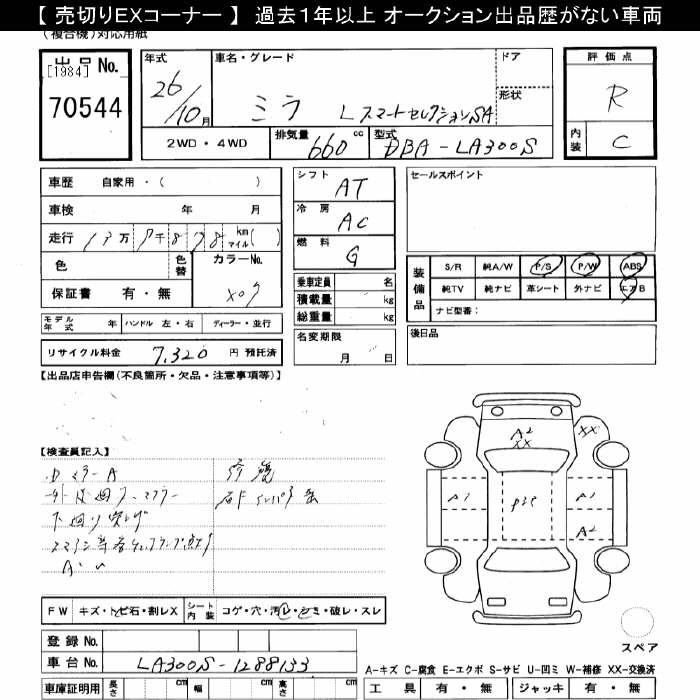 【 売切りEXコーナー 】 過去１年以上 オークション出品歴がない車両
(複合機)対応用紙
出品 No.
[1984]
70544
年式 26/10月
車名・グレード ミラ L スマートセレクションSA
ドア
形状
2WD・4WD
排気量 660 cc
型式 DBA-LA300S
評価点 R
内装 C
車歴 自家用・( )
車検 年 月
走行 13万7千878 km マイル( )
色 色替 カラーNo.
X09
保証書 有・無
モデル年式 年 ハンドル 左・右 ディーラー・並行
リサイクル料金 7,320 円 預託済
シフト AT
冷房 AC
燃料 G
乗車定員 名
積載量 kg
総重量 kg
名変期限 月 日
セールスポイント
装備品
S/R 純A/W P/S P/W ABS
純TV 純ナビ 革シート 外ナビ エアB
ナビ型番:
後日品
【出品店申告欄(不良箇所・欠品・注意事項等)】
【検査員記入】
下廻り
A2
XX
XX
A1
A1
A2
FW キズ・トビ石・割レX シート内装 コゲ・穴・汚レ・シミ・破レ・スレ
登録 No.
車台 No. LA300S-1288133
車庫証明用 長さ cm 幅 cm 高さ cm
スペア
A-キズ C-腐食 E-エクボ S-サビ U-凹ミ W-補修 XX-交換済
工具 有・無 ジャッキ 有・無